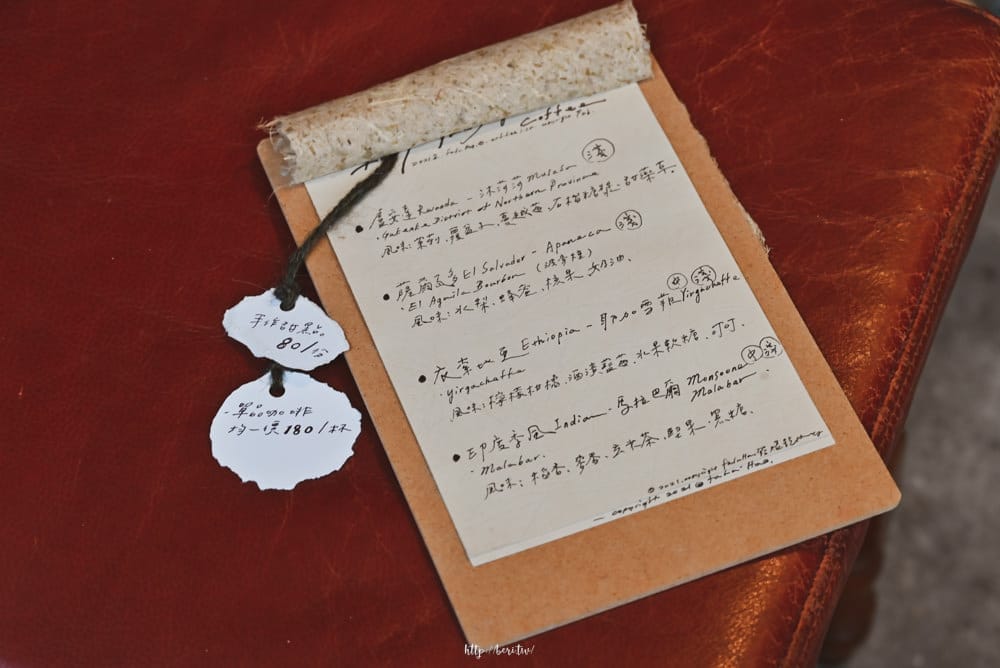 Coffee
盧安達 Rwanda - 沐莎莎 Musasa 淺
District of Northern Province
風味: 茉莉、覆盆子、蔓越莓、石榴糖漿、甜藥草。
薩爾瓦多 El Salvador - Apaneca 淺
El Aguila Bourbon (波旁種)
風味: 水梨、蜂蜜、核果、奶油。
衣索比亞 Ethiopia - 耶加雪菲 Yirgachaffe 中 淺
Yirgachaffe
風味: 檸檬柑橘、酒漬藍莓、水果軟糖、可可。
印度季風 Indian - 馬拉巴爾 Monsooned Malabar 中 深
Malabar.
風味: 稻香、麥香、玄米茶、堅果、黑糖。
copyright 2021
手作甜點
80/份
單品咖啡
均一價 180/杯
http://beri.tw/